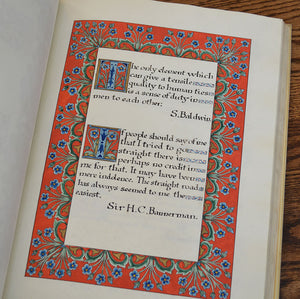 The only element which
can give a tensile
quality to human ties
is a sense of duty in
men to each other.
S. Baldwin
If people should say of me
that I tried to go
straight there is
perhaps no credit in
me for that. It may have been
mere indolence. The straight road
has always seemed to me the
easiest.
Sir H. C. Bannerman.